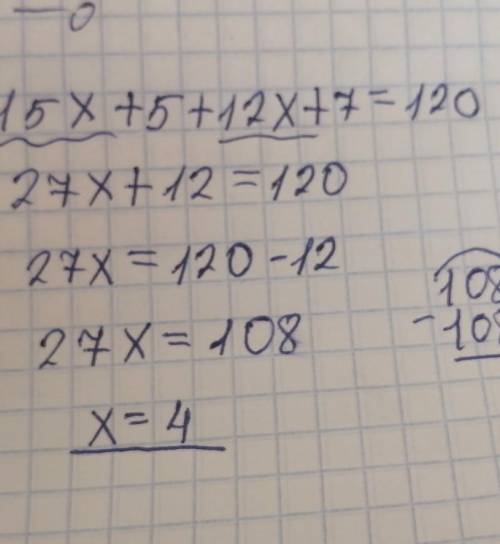 0
15x+5+12x+7=120
27x+12=120
27x=120-12
27x=108
x=4
108
-108